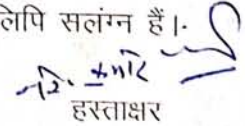 लिपि सलंग्न हैं।
हस्ताक्षर